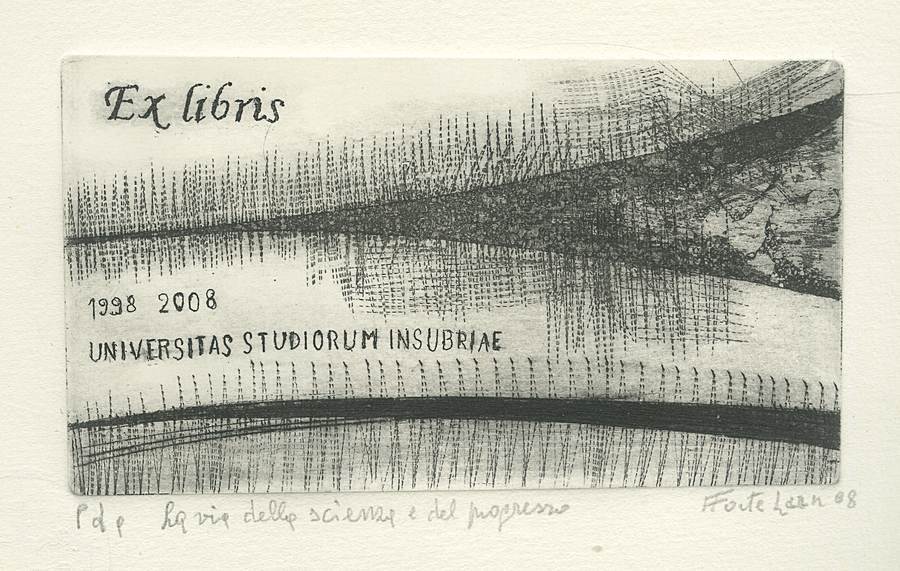 Ex libris
1998 2008
UNIVERSITAS STUDIORUM INSUBRIAE
P d a La via della scienza e del progresso